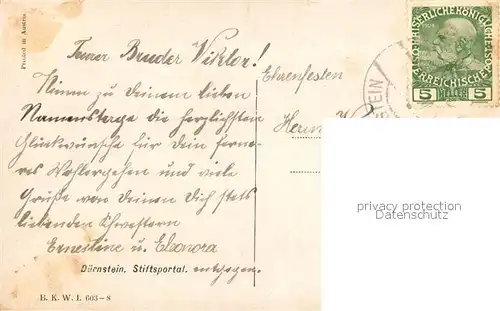 Printed in Austria
Teurer Bruder Viktor!
Nimm zu Deinem lieben
Namenstage die herzlichsten
Glückwünsche für Dein ferne-
res Wohlergehen und viele
Grüße von Deinen Dich stets
liebenden Schwestern
Ernestine u. Eleonora
entgegen.
Dürnstein, Stiftsportal.
B. K. W. I. 603-8
Ehrenfesten
Herrn
5 HELLER 5
STEIN
privacy protection
Datenschutz